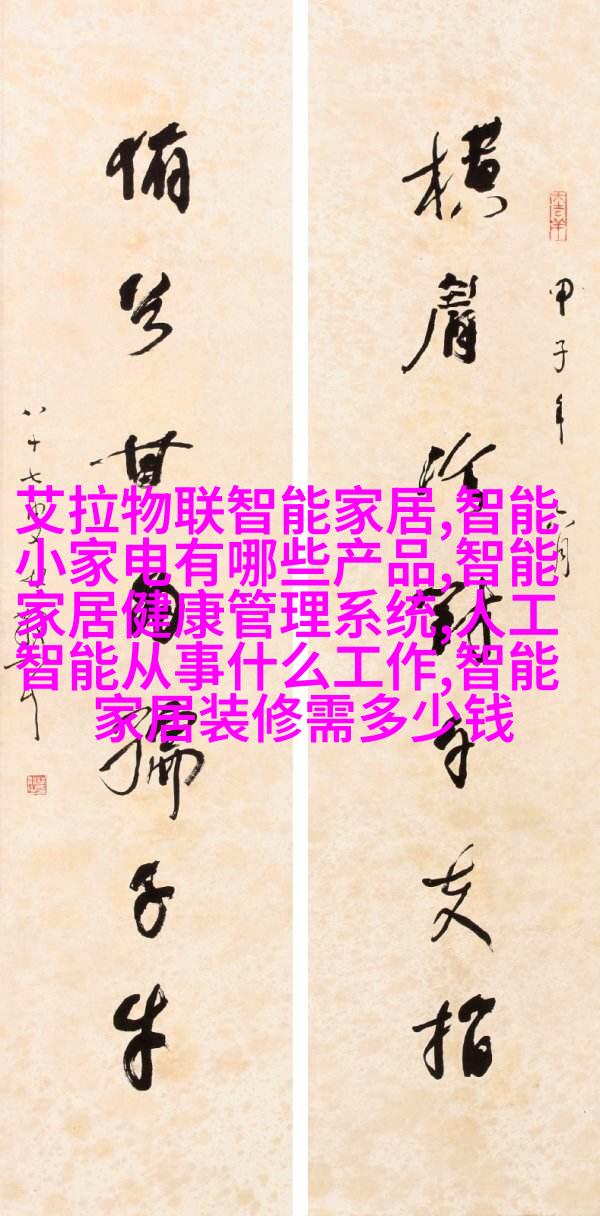 甲子年六月
横眉冷對千夫指
俯首甘為孺子牛
八十七
艾拉物联智能家居,智能
小家电有哪些产品,智能
家居健康管理系统,人工
智能从事什么工作,智能
家居装修需多少钱